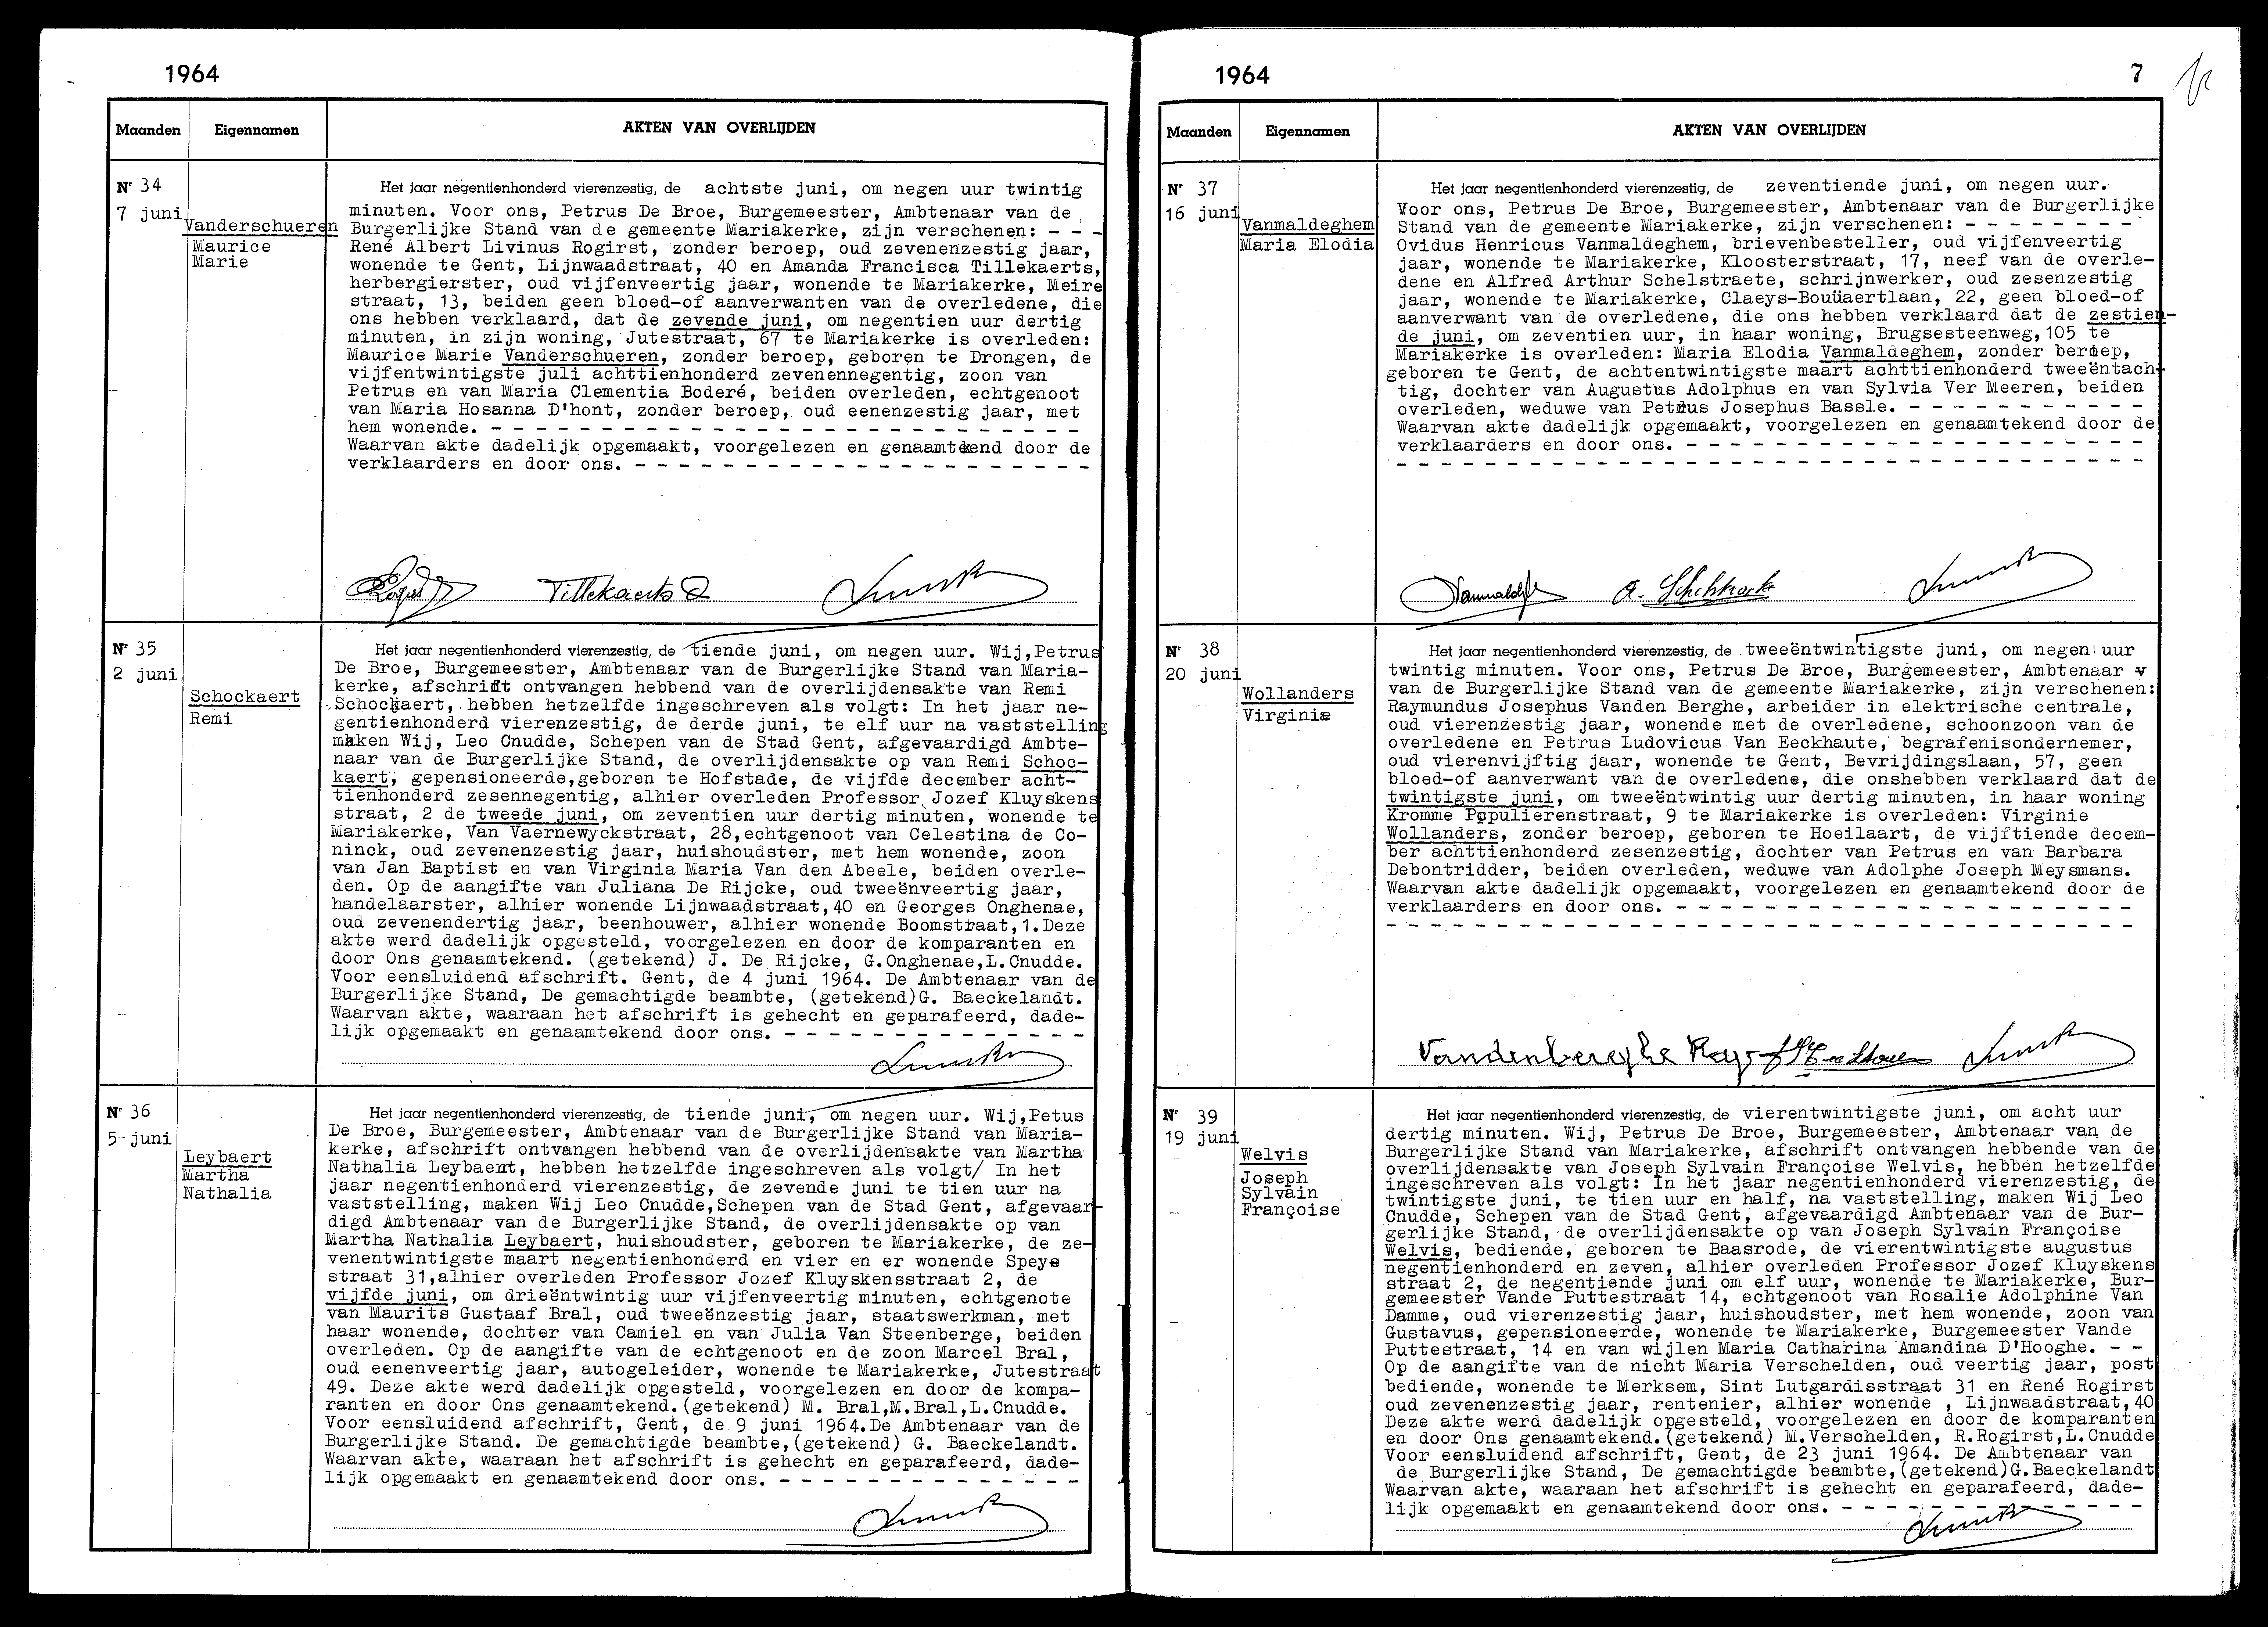 1964
Maanden Eigennamen AKTEN VAN OVERLIJDEN
Nr 34
7 juni
Vanderschueren
Maurice
Marie
Het jaar negentienhonderd vierenzestig, de achtste juni, om negen uur twintig
minuten. Voor ons, Petrus De Broe, Burgemeester, Ambtenaar van de
Burgerlijke Stand van de gemeente Mariakerke, zijn verschenen: - - -
René Albert Livinus Rogirst, zonder beroep, oud zevenenzestig jaar,
wonende te Gent, Lijnwaadstraat, 40 en Amanda Francisca Tillekaerts,
herbergierster, oud vijfenveertig jaar, wonende te Mariakerke, Meire
straat, 13, beiden geen bloed-of aanverwanten van de overledene, die
ons hebben verklaard, dat de zevende juni, om negentien uur dertig
minuten, in zijn woning, Jutestraat, 67 te Mariakerke is overleden:
Maurice Marie Vanderschueren, zonder beroep, geboren te Drongen, de
vijfentwintigste juli achttienhonderd zevenennegentig, zoon van
Petrus en van Maria Clementia Boderé, beiden overleden, echtgenoot
van Maria Hosanna D'hont, zonder beroep, oud eenenzestig jaar, met
hem wonende. - - - - - - - - - - - - - - - - - - - - - - - -
Waarvan akte dadelijk opgemaakt, voorgelezen en genaamtekend door de
verklaarders en door ons. - - - - - - - - - - - - - - - - - -
Tillekaerts
Nr 35
2 juni
Schockaert
Remi
Het jaar negentienhonderd vierenzestig, de tiende juni, om negen uur. Wij,Petrus
De Broe, Burgemeester, Ambtenaar van de Burgerlijke Stand van Maria-
kerke, afschrift ontvangen hebbend van de overlijdensakte van Remi
Schockaert, hebben hetzelfde ingeschreven als volgt: In het jaar ne-
gentienhonderd vierenzestig, de derde juni, te elf uur na vaststelling
maken Wij, Leo Cnudde, Schepen van de Stad Gent, afgevaardigd Ambte-
naar van de Burgerlijke Stand, de overlijdensakte op van Remi Schoc-
kaert, gepensioneerde,geboren te Hofstade, de vijfde december acht-
tienhonderd zesennegentig, alhier overleden Professor Jozef Kluyskens
straat, 2 de tweede juni, om zeventien uur dertig minuten, wonende te
Mariakerke, Van Vaernewyckstraat, 28,echtgenoot van Celestina de Co-
ninck, oud zevenenzestig jaar, huishoudster, met hem wonende, zoon
van Jan Baptist en van Virginia Maria Van den Abeele, beiden overle-
den. Op de aangifte van Juliana De Rijcke, oud tweeënveertig jaar,
handelaarster, alhier wonende Lijnwaadstraat,40 en Georges Onghenae,
oud zevenendertig jaar, beenhouwer, alhier wonende Boomstraat,1.Deze
akte werd dadelijk opgesteld, voorgelezen en door de komparanten en
door Ons genaamtekend. (getekend) J. De Rijcke, G.Onghenae,L.Cnudde.
Voor eensluidend afschrift. Gent, de 4 juni 1964. De Ambtenaar van de
Burgerlijke Stand, De gemachtigde beambte, (getekend)G. Baeckelandt.
Waarvan akte, waaraan het afschrift is gehecht en geparafeerd, dade-
lijk opgemaakt en genaamtekend door ons. - - - - - - - - - - - -
Nr 36
5 juni
Leybaert
Martha
Nathalia
Het jaar negentienhonderd vierenzestig, de tiende juni, om negen uur. Wij,Petus
De Broe, Burgemeester, Ambtenaar van de Burgerlijke Stand van Maria-
kerke, afschrift ontvangen hebbend van de overlijdensakte van Martha
Nathalia Leybaert, hebben hetzelfde ingeschreven als volgt/ In het
jaar negentienhonderd vierenzestig, de zevende juni te tien uur na
vaststelling, maken Wij Leo Cnudde,Schepen van de Stad Gent, afgevaar-
digd Ambtenaar van de Burgerlijke Stand, de overlijdensakte op van
Martha Nathalia Leybaert, huishoudster, geboren te Mariakerke, de ze-
venentwintigste maart negentienhonderd en vier en er wonende Speye
straat 31,alhier overleden Professor Jozef Kluyskensstraat 2, de
vijfde juni, om drieëntwintig uur vijfenveertig minuten, echtgenote
van Maurits Gustaaf Bral, oud tweeënzestig jaar, staatswerkman, met
haar wonende, dochter van Camiel en van Julia Van Steenberge, beiden
overleden. Op de aangifte van de echtgenoot en de zoon Marcel Bral,
oud eenenveertig jaar, autogeleider, wonende te Mariakerke, Jutestraat
49. Deze akte werd dadelijk opgesteld, voorgelezen en door de kompa-
ranten en door Ons genaamtekend.(getekend) M. Bral,M.Bral,L.Cnudde.
Voor eensluidend afschrift, Gent, de 9 juni 1964.De Ambtenaar van de
Burgerlijke Stand. De gemachtigde beambte,(getekend) G. Baeckelandt.
Waarvan akte, waaraan het afschrift is gehecht en geparafeerd, dade-
lijk opgemaakt en genaamtekend door ons. - - - - - - - - - - - -
1964 7
Maanden Eigennamen AKTEN VAN OVERLIJDEN
Nr 37
16 juni
Vanmaldeghem
Maria Elodia
Het jaar negentienhonderd vierenzestig, de zeventiende juni, om negen uur.
Voor ons, Petrus De Broe, Burgemeester, Ambtenaar van de Burgerlijke
Stand van de gemeente Mariakerke, zijn verschenen: - - - - - - - -
Ovidus Henricus Vanmaldeghem, brievenbesteller, oud vijfenveertig
jaar, wonende te Mariakerke, Kloosterstraat, 17, neef van de overle-
dene en Alfred Arthur Schelstraete, schrijnwerker, oud zesenzestig
jaar, wonende te Mariakerke, Claeys-Bouüaertlaan, 22, geen bloed-of
aanverwant van de overledene, die ons hebben verklaard dat de zestien-
de juni, om zeventien uur, in haar woning, Brugsesteenweg,105 te
Mariakerke is overleden: Maria Elodia Vanmaldeghem, zonder beroep,
geboren te Gent, de achtentwintigste maart achttienhonderd tweeëntach-
tig, dochter van Augustus Adolphus en van Sylvia Ver Meeren, beiden
overleden, weduwe van Petrus Josephus Bassle. - - - - - - - - - -
Waarvan akte dadelijk opgemaakt, voorgelezen en genaamtekend door de
verklaarders en door ons. - - - - - - - - - - - - - - - - - -
- - - - - - - - - - - - - - - - - - - - - - - - - - - - - -
Nr 38
20 juni
Wollanders
Virginie
Het jaar negentienhonderd vierenzestig, de tweeëntwintigste juni, om negen uur
twintig minuten. Voor ons, Petrus De Broe, Burgemeester, Ambtenaar v
van de Burgerlijke Stand van de gemeente Mariakerke, zijn verschenen:
Raymundus Josephus Vanden Berghe, arbeider in elektrische centrale,
oud vierenzestig jaar, wonende met de overledene, schoonzoon van de
overledene en Petrus Ludovicus Van Eeckhaute, begrafenisondernemer,
oud vierenvijftig jaar, wonende te Gent, Bevrijdingslaan, 57, geen
bloed-of aanverwant van de overledene, die onshebben verklaard dat de
twintigste juni, om tweeëntwintig uur dertig minuten, in haar woning
Kromme Populierenstraat, 9 te Mariakerke is overleden: Virginie
Wollanders, zonder beroep, geboren te Hoeilaart, de vijftiende decem-
ber achttienhonderd zesenzestig, dochter van Petrus en van Barbara
Debontridder, beiden overleden, weduwe van Adolphe Joseph Meysmans.
Waarvan akte dadelijk opgemaakt, voorgelezen en genaamtekend door de
verklaarders en door ons. - - - - - - - - - - - - - - - - - -
- - - - - - - - - - - - - - - - - - - - - - - - - - - - - -
Vandenberghe Ray
Nr 39
19 juni
Welvis
Joseph
Sylvain
Françoise
Het jaar negentienhonderd vierenzestig, de vierentwintigste juni, om acht uur
dertig minuten. Wij, Petrus De Broe, Burgemeester, Ambtenaar van de
Burgerlijke Stand van Mariakerke, afschrift ontvangen hebbende van de
overlijdensakte van Joseph Sylvain Françoise Welvis, hebben hetzelfde
ingeschreven als volgt: In het jaar negentienhonderd vierenzestig, de
twintigste juni, te tien uur en half, na vaststelling, maken Wij Leo
Cnudde, Schepen van de Stad Gent, afgevaardigd Ambtenaar van de Bur-
gerlijke Stand, de overlijdensakte op van Joseph Sylvain Françoise
Welvis, bediende, geboren te Baasrode, de vierentwintigste augustus
negentienhonderd en zeven, alhier overleden Professor Jozef Kluyskens
straat 2, de negentiende juni om elf uur, wonende te Mariakerke, Bur-
gemeester Vande Puttestraat 14, echtgenoot van Rosalie Adolphine Van
Damme, oud vierenzestig jaar, huishoudster, met hem wonende, zoon van
Gustavus, gepensioneerde, wonende te Mariakerke, Burgemeester Vande
Puttestraat, 14 en van wijlen Maria Catharina Amandina D'Hooghe. - -
Op de aangifte van de nicht Maria Verschelden, oud veertig jaar, post
bediende, wonende te Merksem, Sint Lutgardisstraat 31 en René Rogirst
oud zevenenzestig jaar, rentenier, alhier wonende , Lijnwaadstraat,40
Deze akte werd dadelijk opgesteld, voorgelezen en door de komparanten
en door Ons genaamtekend.(getekend) M.Verschelden, R.Rogirst,L.Cnudde
Voor eensluidend afschrift, Gent, de 23 juni 1964. De Ambtenaar van
de Burgerlijke Stand, De gemachtigde beambte,(getekend)G.Baeckelandt
Waarvan akte, waaraan het afschrift is gehecht en geparafeerd, dade-
lijk opgemaakt en genaamtekend door ons. - - - - - - - - - - - -